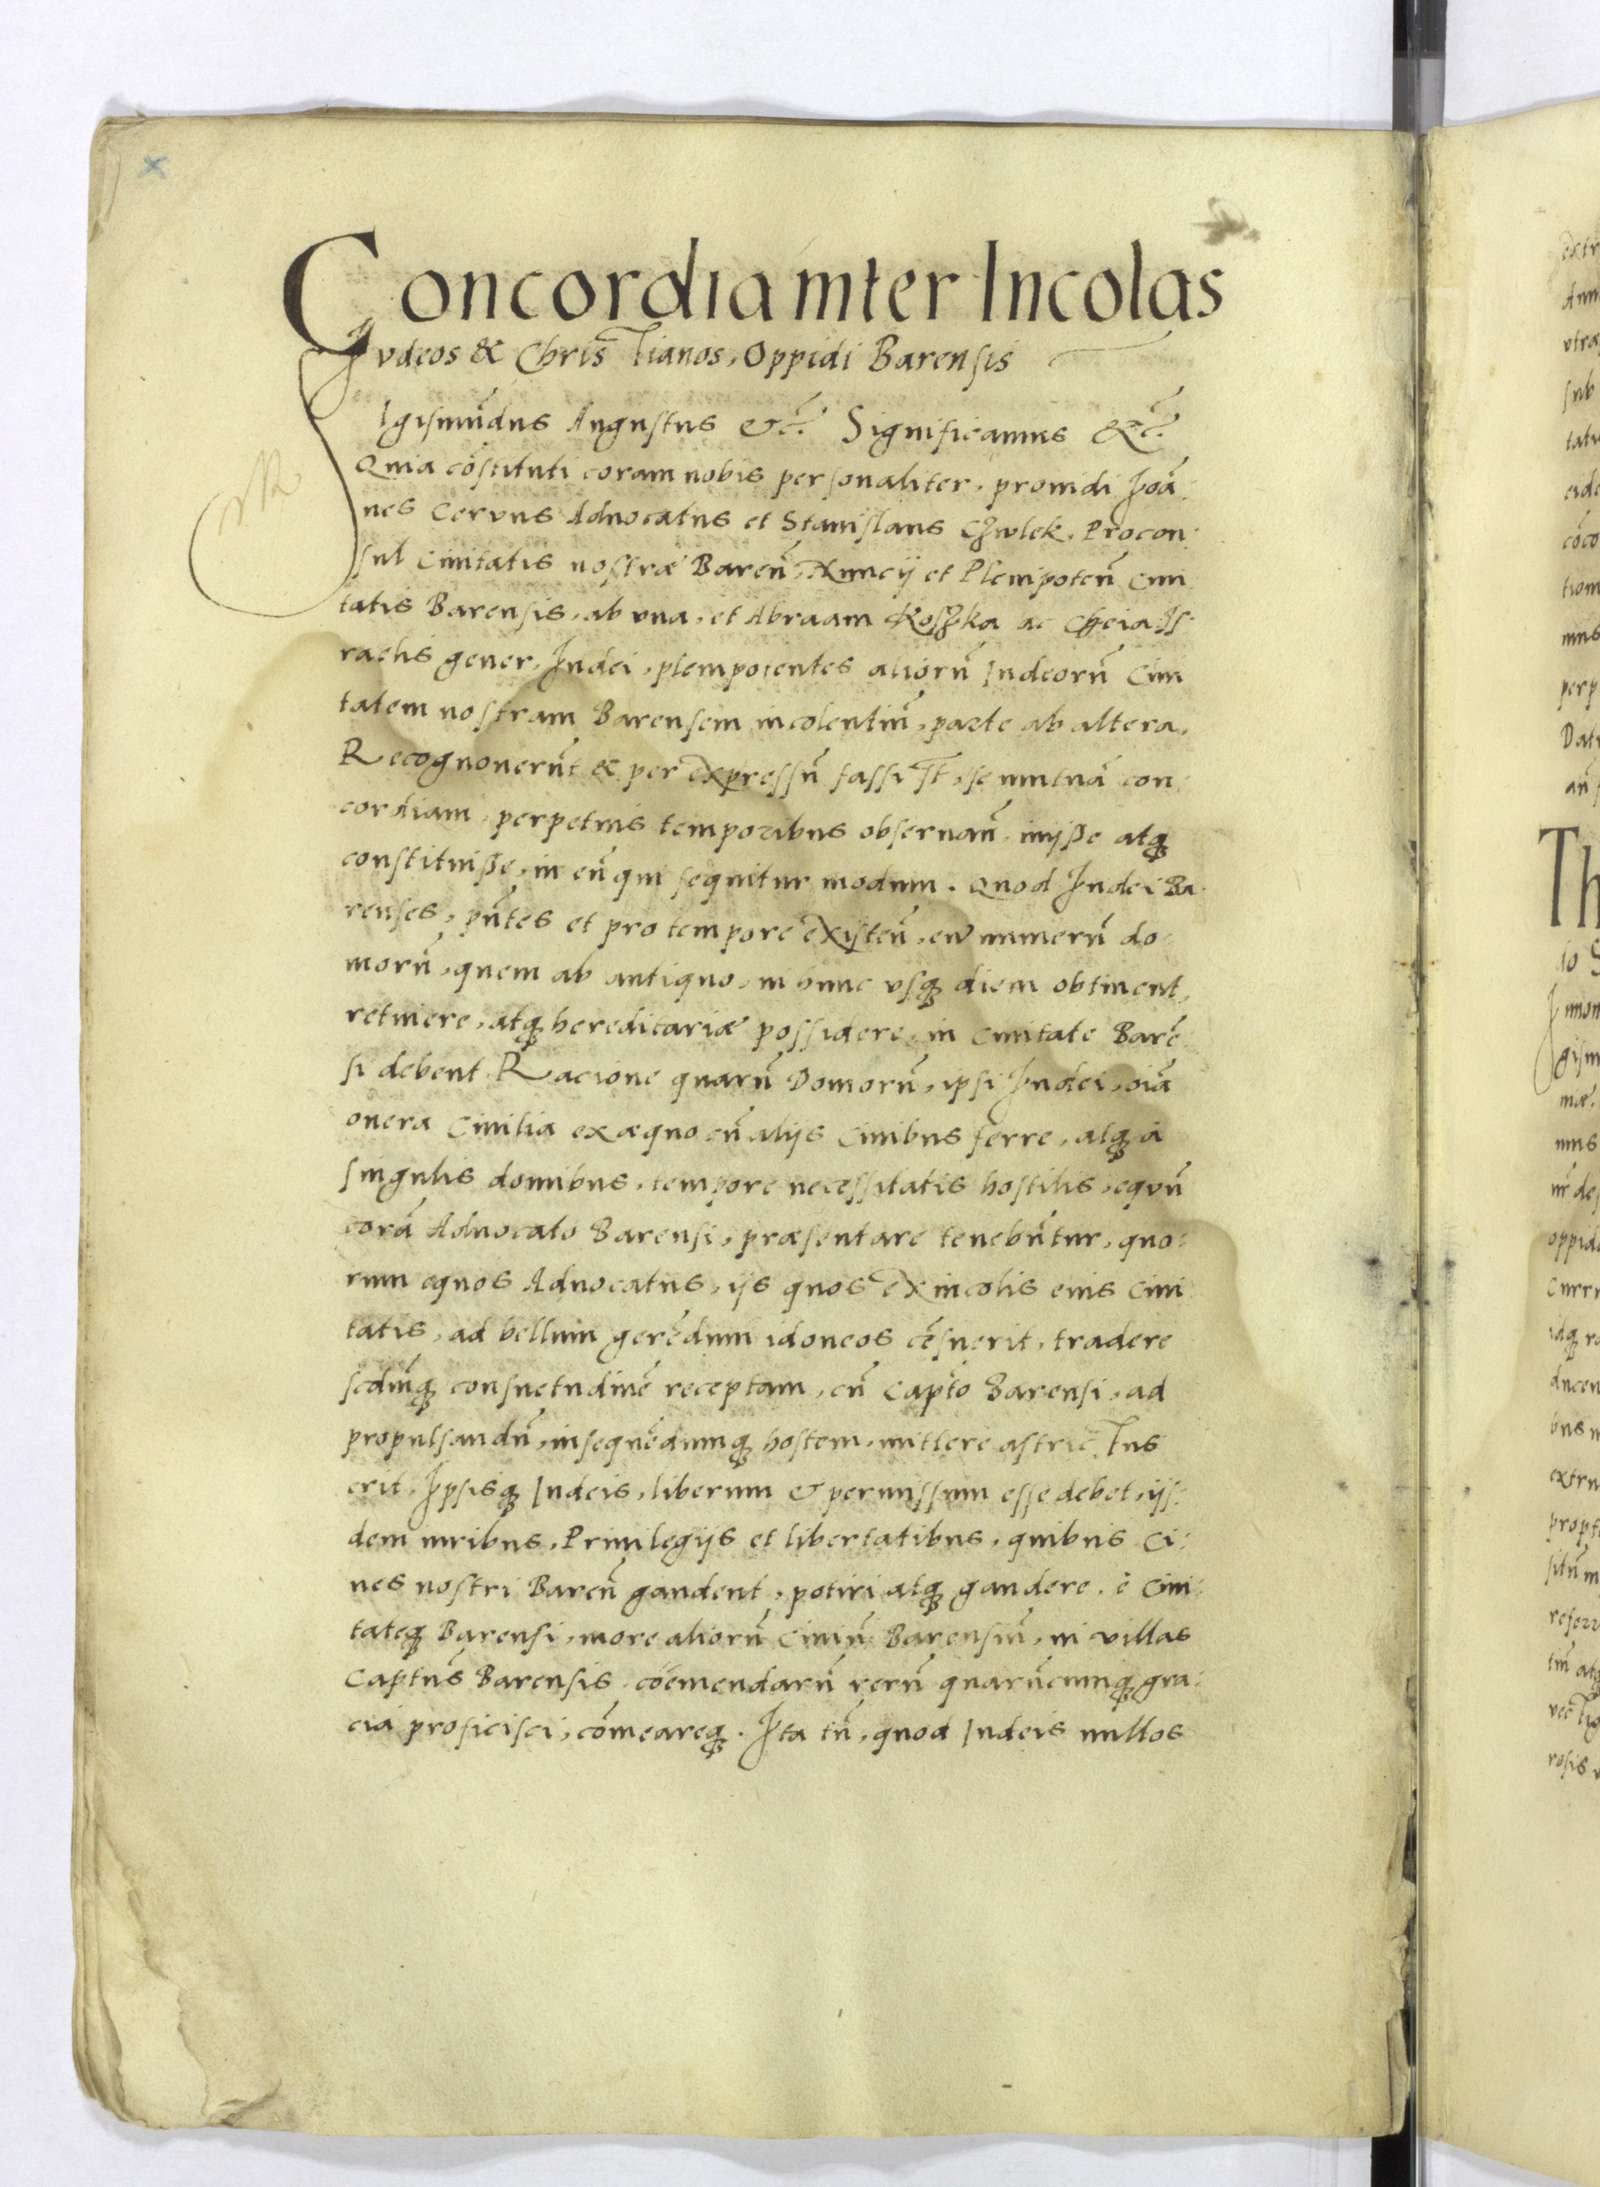 Concordia inter Incolas
Judeos & Christianos, Oppidi Barensis
Sigismūdus Augustus &c̄. Significamus &c̄.
Quia cōstituti coram nobis personaliter, prouidi Joā:
nes Ceruus Aduocatus et Stanislaus Czwlek, Procon:
sul Ciuitatis nostræ Bareñ, Nuncij et Plenipoteñ Ciui
tatis Barensis, ab vna, et Abraam Koszka ac Cheia Js:
raelis gener, Judei, plenipotentes aliorū Iudeorū Ciui
tatem nostram Barensem incolentiū, parte ab altera,
Recognouerūt & per expressū fassi st̄, se mutuā con:
cordiam, perpetuis temporibus obseruañ, inijsse atq3
constituisse, in eū qui sequitur modum. Quod Judei Ba:
renses, pn̄tes et pro tempore existeñ, eū numerū do:
morū, quem ab antiquo, in hunc vsq3 diem obtinent,
retinere, atq3 hereditariæ possidere, in Ciuitate Barē:
si debent. Racione quarū Domorū, ipsi Judei, oīa
onera Ciuilia ex æquo cū alijs Ciuibus ferre, atq3 à
singulis domibus, tempore necessitatis hostilis, equū
corā Aduocato Barensi, præsentare tenebūtur, quo:
rum equos Aduocatus, ijs quos ex incolis eius Ciui
tatis, ad bellum gerēdum idoneos cēsuerit, tradere
scdm̄q3 consuetudinē receptam, cū Capt̄o Barensi, ad
propulsandū, insequēdumq3 hostem, mittere astrictus
erit. Jpsisq3 Iudeis, liberum & permissum esse debet, ijs:
dem iuribus, Priuilegijs et libertatibus, quibus Ci:
ues nostri Bareñ gaudent, potiri atq3 gaudere, è Ciui:
tateq3 Barensi, more aliorū Ciuiū Barensiū, in villas
Captūs Barensis, coëmendarū rerū quarūcumq3 gra:
cia proficisci, cōmeareq3. Jta tn̄, quod Iudeis nullos